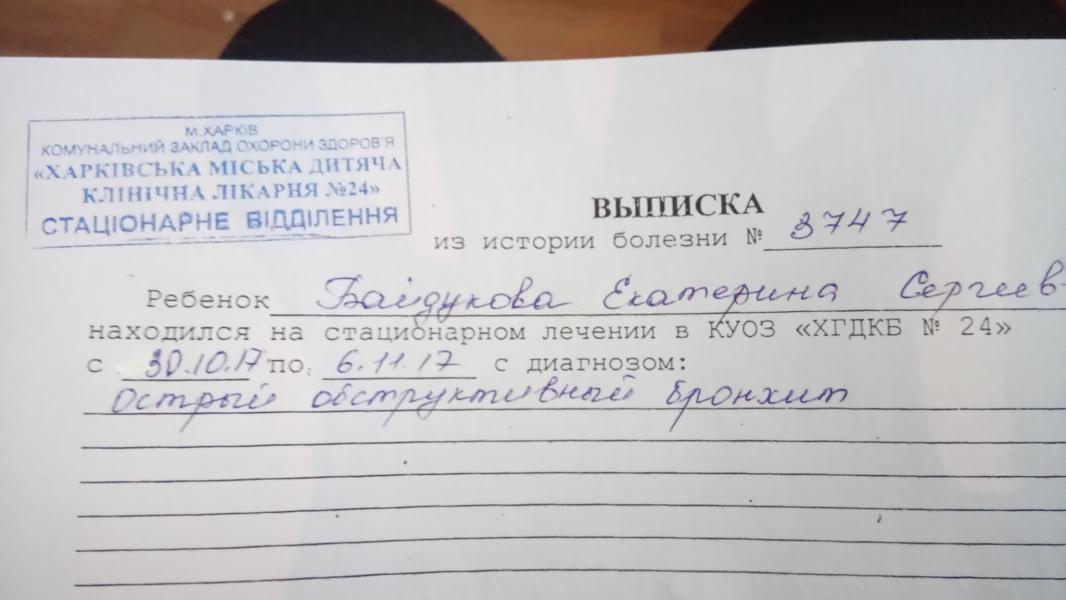 М.ХАРКІВ
КОМУНАЛЬНИЙ ЗАКЛАД ОХОРОНИ ЗДОРОВ'Я
«ХАРКІВСЬКА МІСЬКА ДИТЯЧА
КЛІНІЧНА ЛІКАРНЯ №24»
СТАЦІОНАРНЕ ВІДДІЛЕННЯ
ВЫПИСКА
из истории болезни № 3747
Ребенок Байдукова Екатерина Сергеев-
находился на стационарном лечении в КУОЗ «ХГДКБ № 24»
с 30.10.17 по 6.11.17 с диагнозом:
Острый обструктивный бронхит